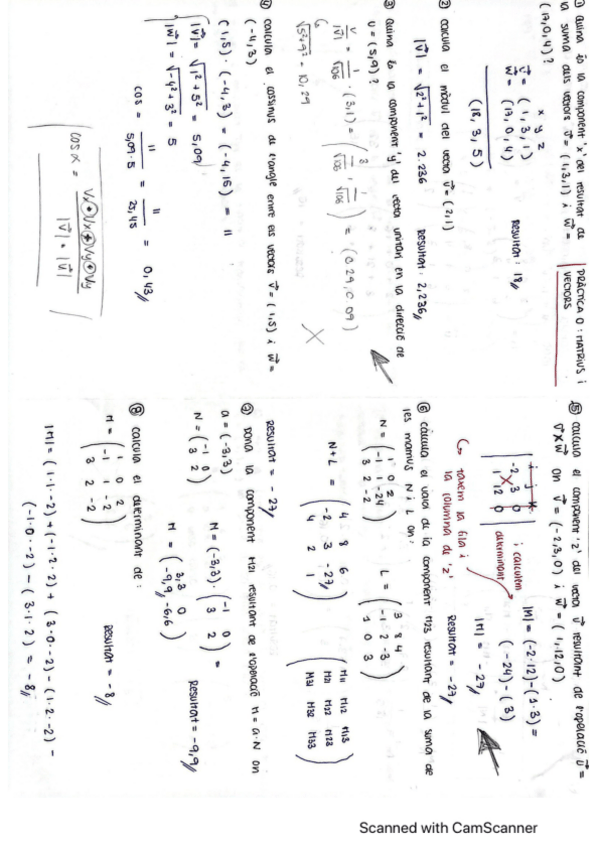 PRÀCTICA 0: MATRIUS i
VECTORS
① Quina és la component 'x' del resultat de
la suma dels vectors v = (1,3,1) i w =
(17,0,4)?
x y z
v = (1, 3, 1)
w = (17, 0, 4)
(18, 3, 5)
Resultat: 18
② calcula el mòdul del vector v = (2,1)
|v| = √2²+1² = 2.236
Resultat: 2,236
③ Quina és la component 'y' del vector unitari en la direcció de
v = (5,9)?
v/|v| = 1/√106 · (3,1) = (3/√106, 1/√106) = (0.29, 0.09)
√5²+9² = 10,29
④ calcula el cosinus de l'angle entre els vectors v = (1,5) i w =
(-4,3)
(1,5) · (-4,3) = (-4,15) = 11
|v| = √1²+5² = 5,09
|w| = √-4²+3² = 5
cos = 11/5,09·5 = 11/25,45 = 0,43
cos α =
|v| · |v|
⑤ calcula el component 'z' del vector u resultant de l'operació u =
v x w on v = (-2,3,0) i w = (1,12,0)
i j k
-2 3 0
1 12 0
i calculem
determinant
tatxem la fila i
la columna de 'z'
|M| = (-2·12)-(1·3) =
(-24)-(3)
|M| = -27
Resultat = -27
⑥ calcula el valor de la component M23 resultant de la suma de
les matrius N i L on:
N = (1 0 2
-1 1 -24
3 2 -2)
L = (3 8 4
-1 2 -3
1 0 3)
N+L = (4 8 6
-2 3 -27
4 2 1)
(M11 M12 M13
M21 M22 M23
M31 M32 M33)
Resultat = -27
⑦ Dona la component M21 resultant de l'operació M = a·N on
a = (-3,3)
N = (-1 0
3 2)
M = (-3,3) · (-1 0
3 2) =
M = (3,3 0
-9,9 -6,6)
Resultat = -9,9
⑧ calcula el determinant de:
M = (1 0 2
-1 1 -2
3 2 -2)
Resultat = -8
|M| = (1·1·-2) + (-1·2·2) + (3·0·-2) - (1·2·-2) -
(-1·0·-2) - (3·1·2) = -8
Scanned with CamScanner